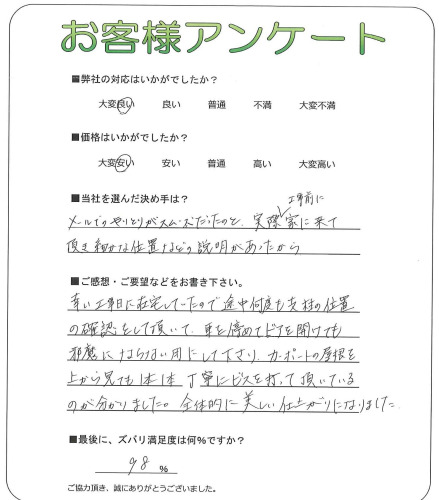 お客様アンケート
■弊社の対応はいかがでしたか？
大変良い 良い 普通 不満 大変不満
■価格はいかがでしたか？
大変安い 安い 普通 高い 大変高い
■当社を選んだ決め手は？
工事前に
メールでのやりとりがスムーズだったのと、実際家に来て
頂き細かな位置などの説明があったから
■ご感想・ご要望などをお書き下さい。
幸い工事日に在宅していたので途中何度も支柱の位置
の確認をして頂いて、車を停めてドアを開けても
邪魔にならない用にして下さり、カーポートの屋根を
上から見ても1本1本丁寧にビスを打って頂いている
のが分かりました。全体的に美しい仕上がりになりました。
■最後に、ズバリ満足度は何%ですか？
98 %
ご協力頂き、誠にありがとうございました。